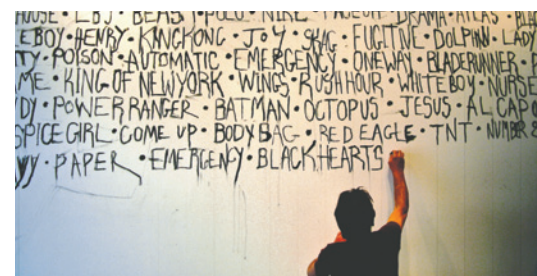 HOUSE • LBJ • BEAST • POLO • NIKE • PAGEUP • DRAMA • ATLAS •
E BOY • HENRY • KING KONG • JOY • SKAG • FUGITIVE • DOLPHIN • LADY
TY • POISON • AUTOMATIC • EMERGENCY • ONEWAY • BLADERUNNER •
ME • KING OF NEW YORK • WINGS • RUSH HOUR • WHITE BOY • NURSE
DY • POWER RANGER • BATMAN • OCTOPUS • JESUS • AL CAPO
SPICE GIRL • COME UP • BODY BAG • RED EAGLE • TNT • NUMBER
• PAPER • EMERGENCY • BLACK HEARTS